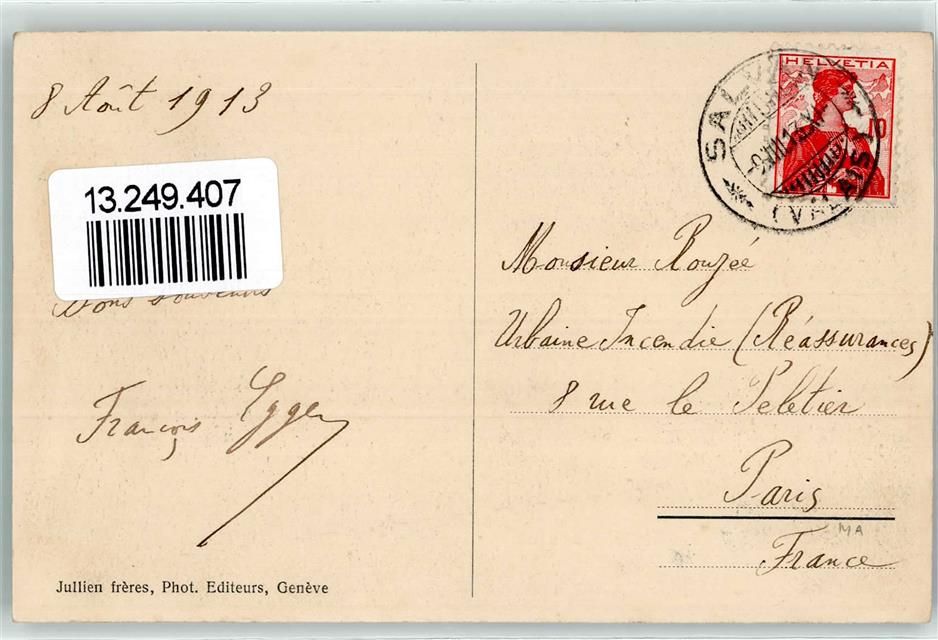 8 Août 1913
13.249.407
Bons souvenirs
François Egger
Jullien frères, Phot. Editeurs, Genève
HELVETIA
10
SALVAN
(VALAIS)
Monsieur Rouzée
Urbaine Incendie (Réassurances)
8 rue le Peletier
Paris
MA
France